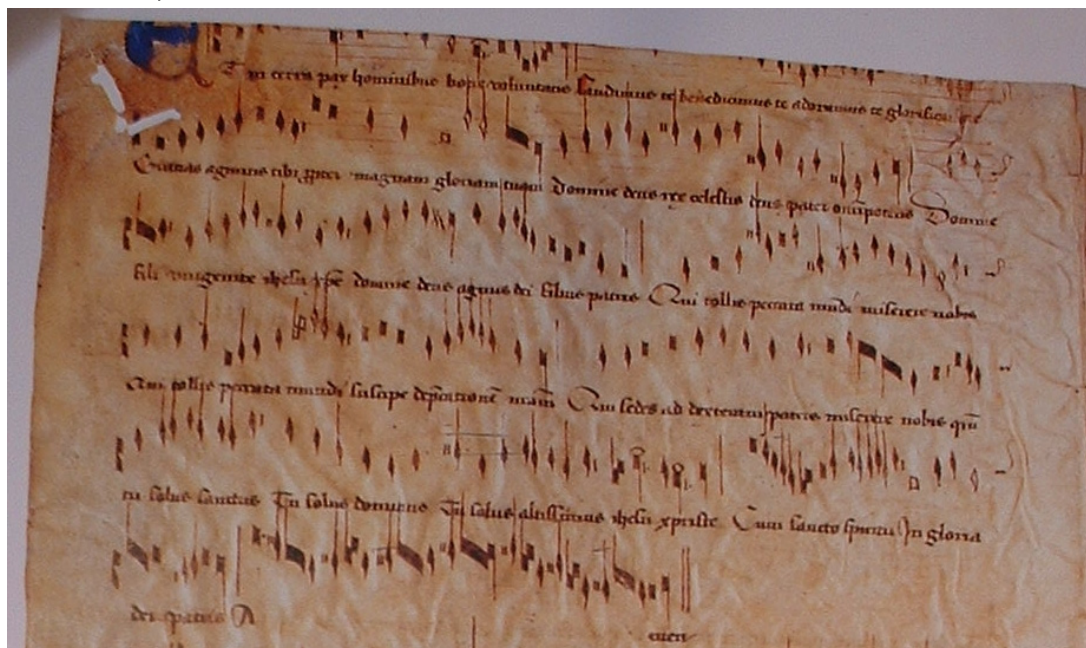 Et in terra pax hominibus bone voluntatis Laudamus te benedicimus te adoramus te glorificamus te
Gratias agimus tibi ppter magnam gloriam tuam Domine deus rex celestis deus pater omīpotens Domine
fili unigenite ihesu xp̄e domine deus agnus dei filius patris Qui tollis peccata mundi miserere nobis
Qui tollis peccata mundi suscipe dep̄cationē nr̄am Qui sedes ad dexteram patris miserere nobis qm̄
tu solus sanctus Tu solus dominus Tu solus altissimus ihesu xpriste Cum sancto spiritu In gloria
dei patris A men